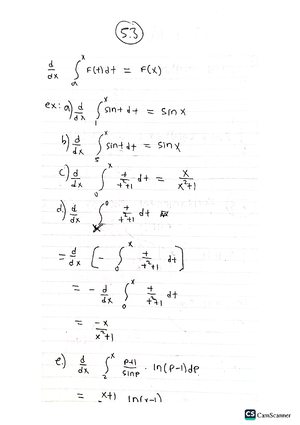 5.3
d/dx ∫_a^x F(t)dt = F(x)
ex: a) d/dx ∫_1^x sint dt = sin x
b) d/dx ∫_5^x sint dt = sin x
c) d/dx ∫_0^x t/t²+1 dt = x/x²+1
d) d/dx ∫_x^0 t/t²+1 dt
= d/dx [ - ∫_0^x t/t²+1 dt ]
= - d/dx ∫_0^x t/t²+1 dt
= -x/x²+1
e.) d/dx ∫_2^x p+1/sinp · ln(p-1)dp
= x+1 ln(x-1)
CS CamScanner